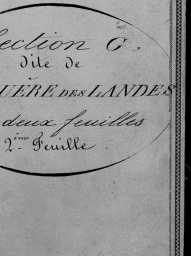 Section C.
dite de
UÈRE DES LANDES
deux feuilles
2ème Feuille.